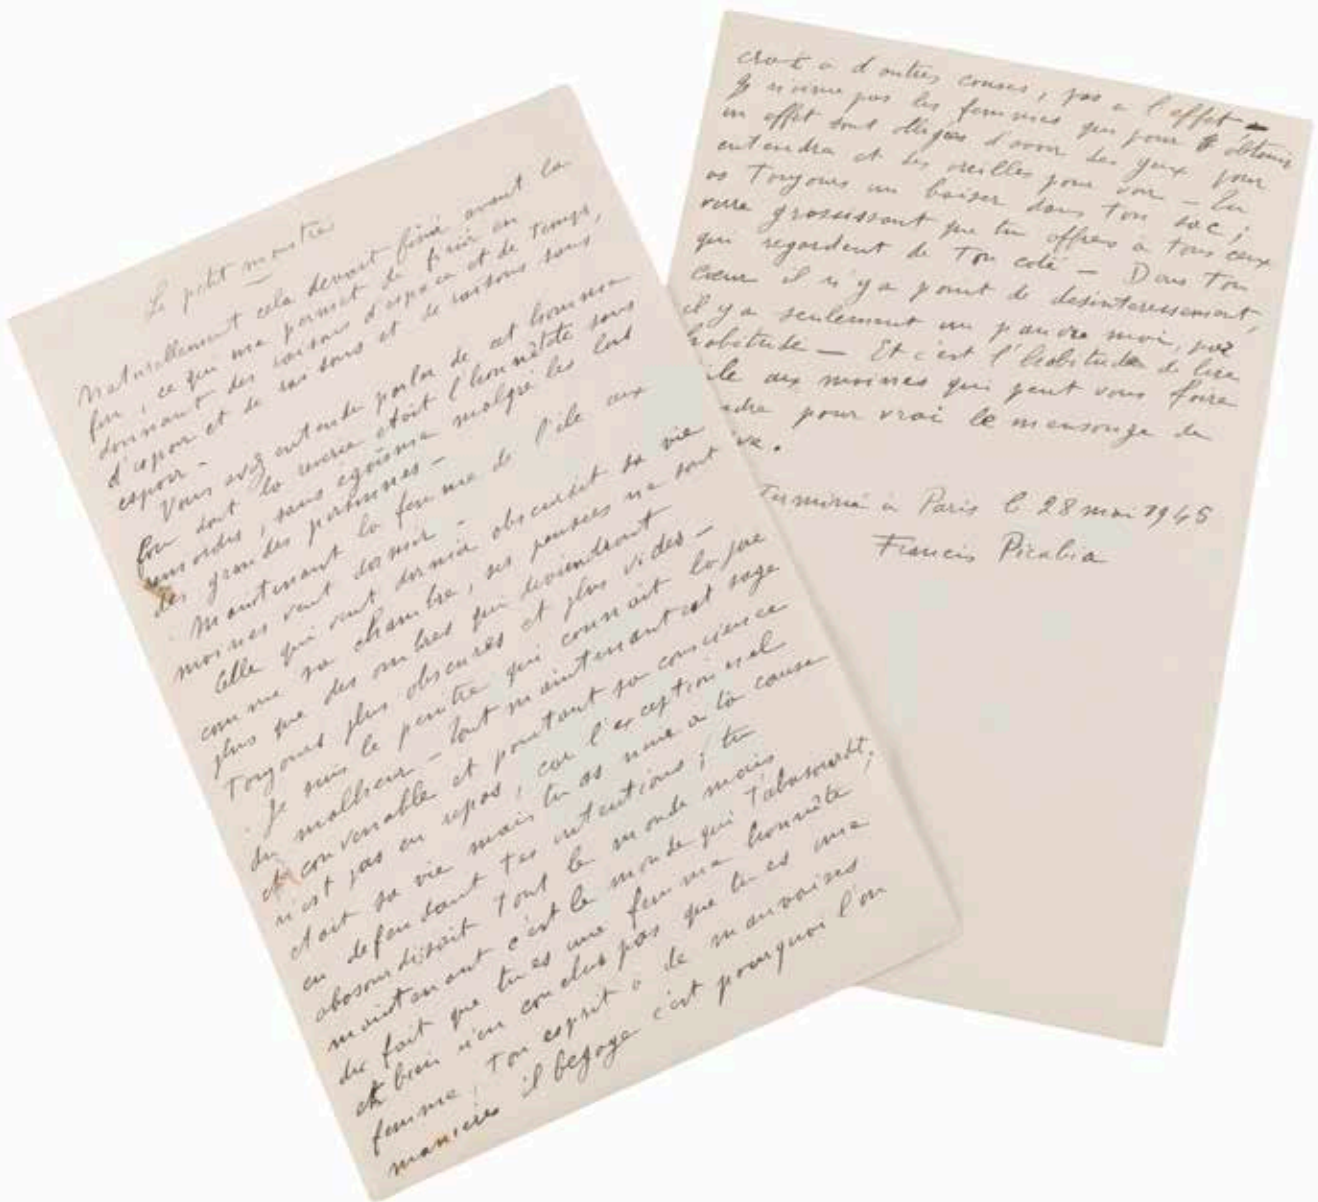 Le petit monstre
Naturellement cela devait finir avant la
fin, ce qui me permet de finir en
donnant des raisons d'espace et de temps,
d'espoir et de raisons et de raisons sans
espoir -
Vous avez entendu parler de cet homme
fou dont la reverie etait l'honnêteté sans
remords, sans égoïsme malgré les lois
des grandes personnes -
Maintenant la femme de l'ile aux
moines veut dormir -
Celle qui veut dormir obscurcit sa vie
comme sa chambre, ses pensées ne sont
plus que des ombres qui deviendront
toujours plus obscures et plus vides -
Je suis le peintre qui connait la joie
du malheur - Tout maintenant est sage
et convenable et pourtant sa conscience
n'est pas en repos, car l'exceptionnel
etait sa vie mais tu as nui a ta cause
en defendant tes intentions ; tu
abasourdisait tout le monde mais
maintenant c'est le monde qui t'abasourdit,
du fait que tu es une femme honnête
et bien n'en conclus pas que tu es une
femme, ton esprit a de mauvaises
manieres il begaye c'est pourquoi l'on
croit a d'autres causes, pas a l'effet -
Je n'aime pas les femmes qui pour obtenir
un effet sont obligées d'avoir des yeux pour
entendre et des oreilles pour voir - Tu
as toujours un baiser dans ton sac ;
verre grossissant que tu offres a tous ceux
qui regardent de ton coté - Dans ton
coeur il n'y a point de desinteressement,
il y a seulement un pauvre moi, par
habitude - Et c'est l'habitude de lire
ile aux moines qui peut vous faire
ndre pour vrai le mensonge du
ve.
Terminé à Paris le 28 mai 1946
Francis Picabia